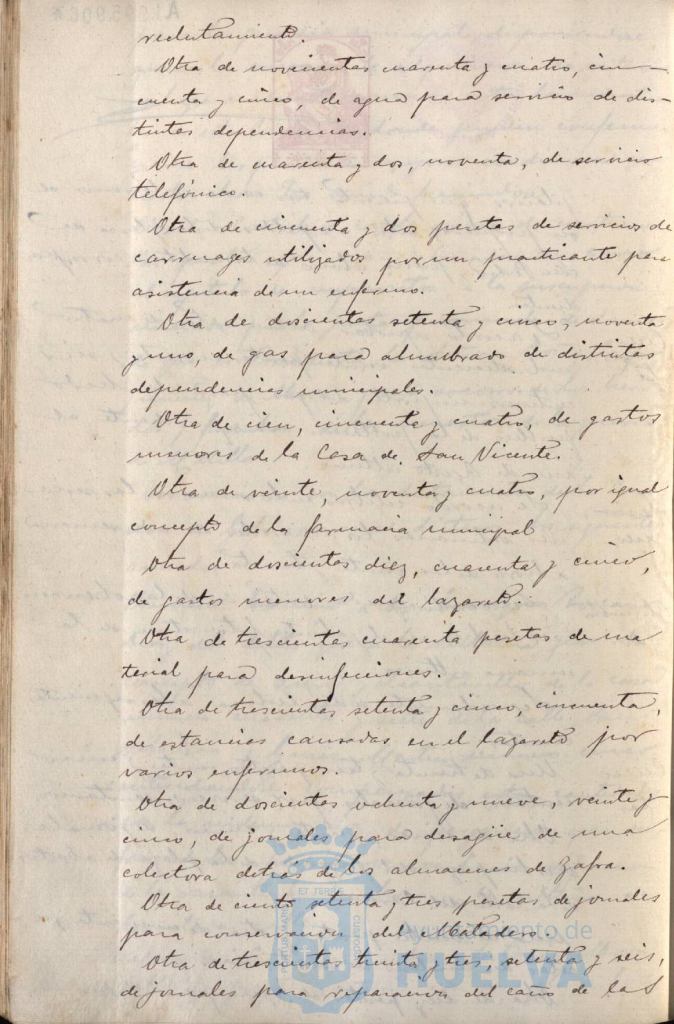 reclutamiento.
Otra de novecientas cuarenta y cuatro, cin-
cuenta y cinco, de agua para servicio de dis-
tintas dependencias.
Otra de cuarenta y dos, noventa, de servicio
telefónico.
Otra de cincuenta y dos pesetas de servicios de
carruages utilizados por un practicante para
asistencia de un enfermo.
Otra de doscientas setenta y cinco, noventa
y uno, de gas para alumbrado de distintas
dependencias municipales.
Otra de cien, cincuenta y cuatro, de gastos
menores de la Casa de San Vicente.
Otra de veinte, noventa y cuatro, por igual
concepto de la farmacia municipal
Otra de doscientas diez, cuarenta y cinco,
de gastos menores del lazareto.
Otra de trescientas cuarenta pesetas de ma
terial para desinfecciones.
Otra de trescientas setenta y cinco, cincuenta,
de estancias causadas en el lazareto por
varios enfermos.
Otra de doscientas ochenta y nueve, veinte y
cinco, de jornales para desagüe de una
colectora detrás de los almacenes de Zafra.
Otra de ciento setenta y tres pesetas de jornales
para conservación del Matadero.
Otra de trescientas treinta y tres, setenta y seis,
de jornales para reparación del caño de las
Ayuntamiento de
HUELVA